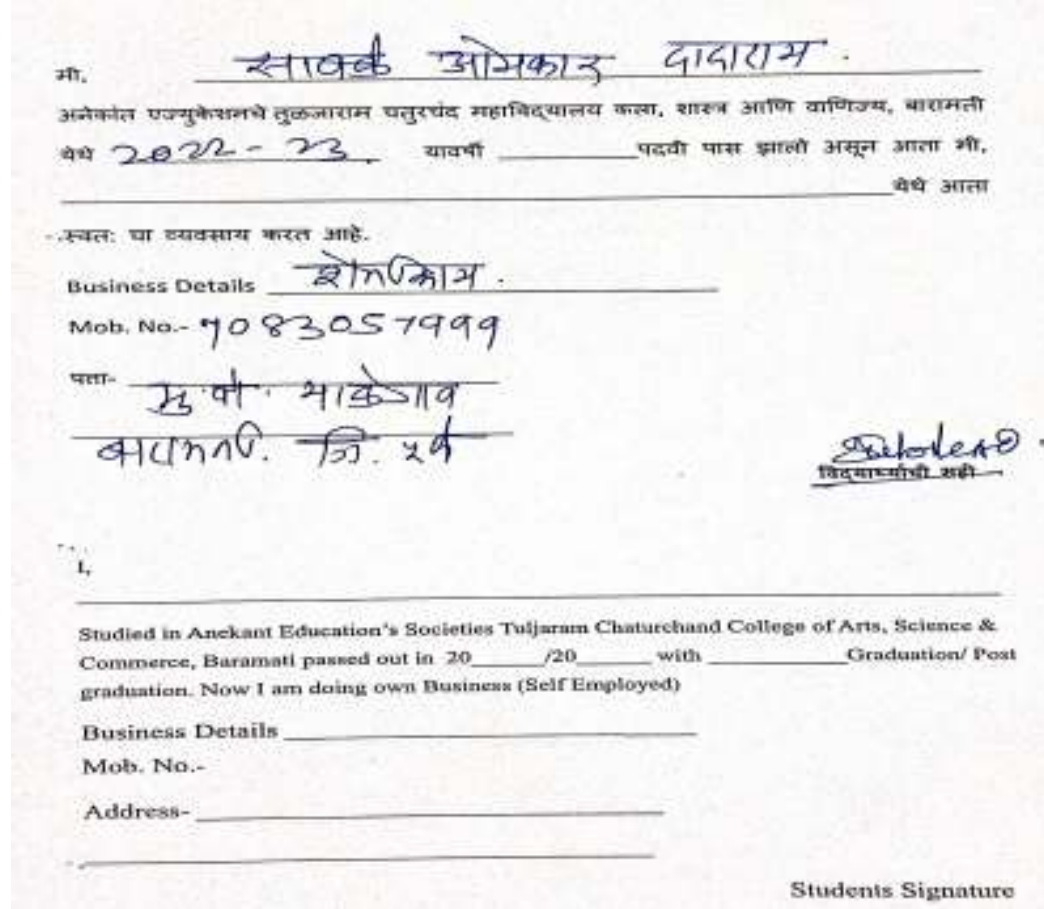 मी, ओमकार दादाराम.
अनेकांत एज्युकेशनचे तुळजाराम चतुरचंद महाविद्यालय कला, शास्त्र आणि वाणिज्य, बारामती
येथे 2022-23. यावर्षी ________ पदवी पास झालो असून आता मी,
________ येथे आता
स्वत: चा व्यवसाय करत आहे.
Business Details शेतीकाम.
Mob. No.-
पत्ता- मु.पो.
बारामती. जि. पुणे
विद्यार्थ्याची सही
I,
Studied in Anekant Education's Societies Tuljaram Chaturchand College of Arts, Science &
Commerce, Baramati passed out in 20______/20______ with ________Graduation/ Post
graduation. Now I am doing own Business (Self Employed)
Business Details ________
Mob. No.-
Address- ________
Students Signature